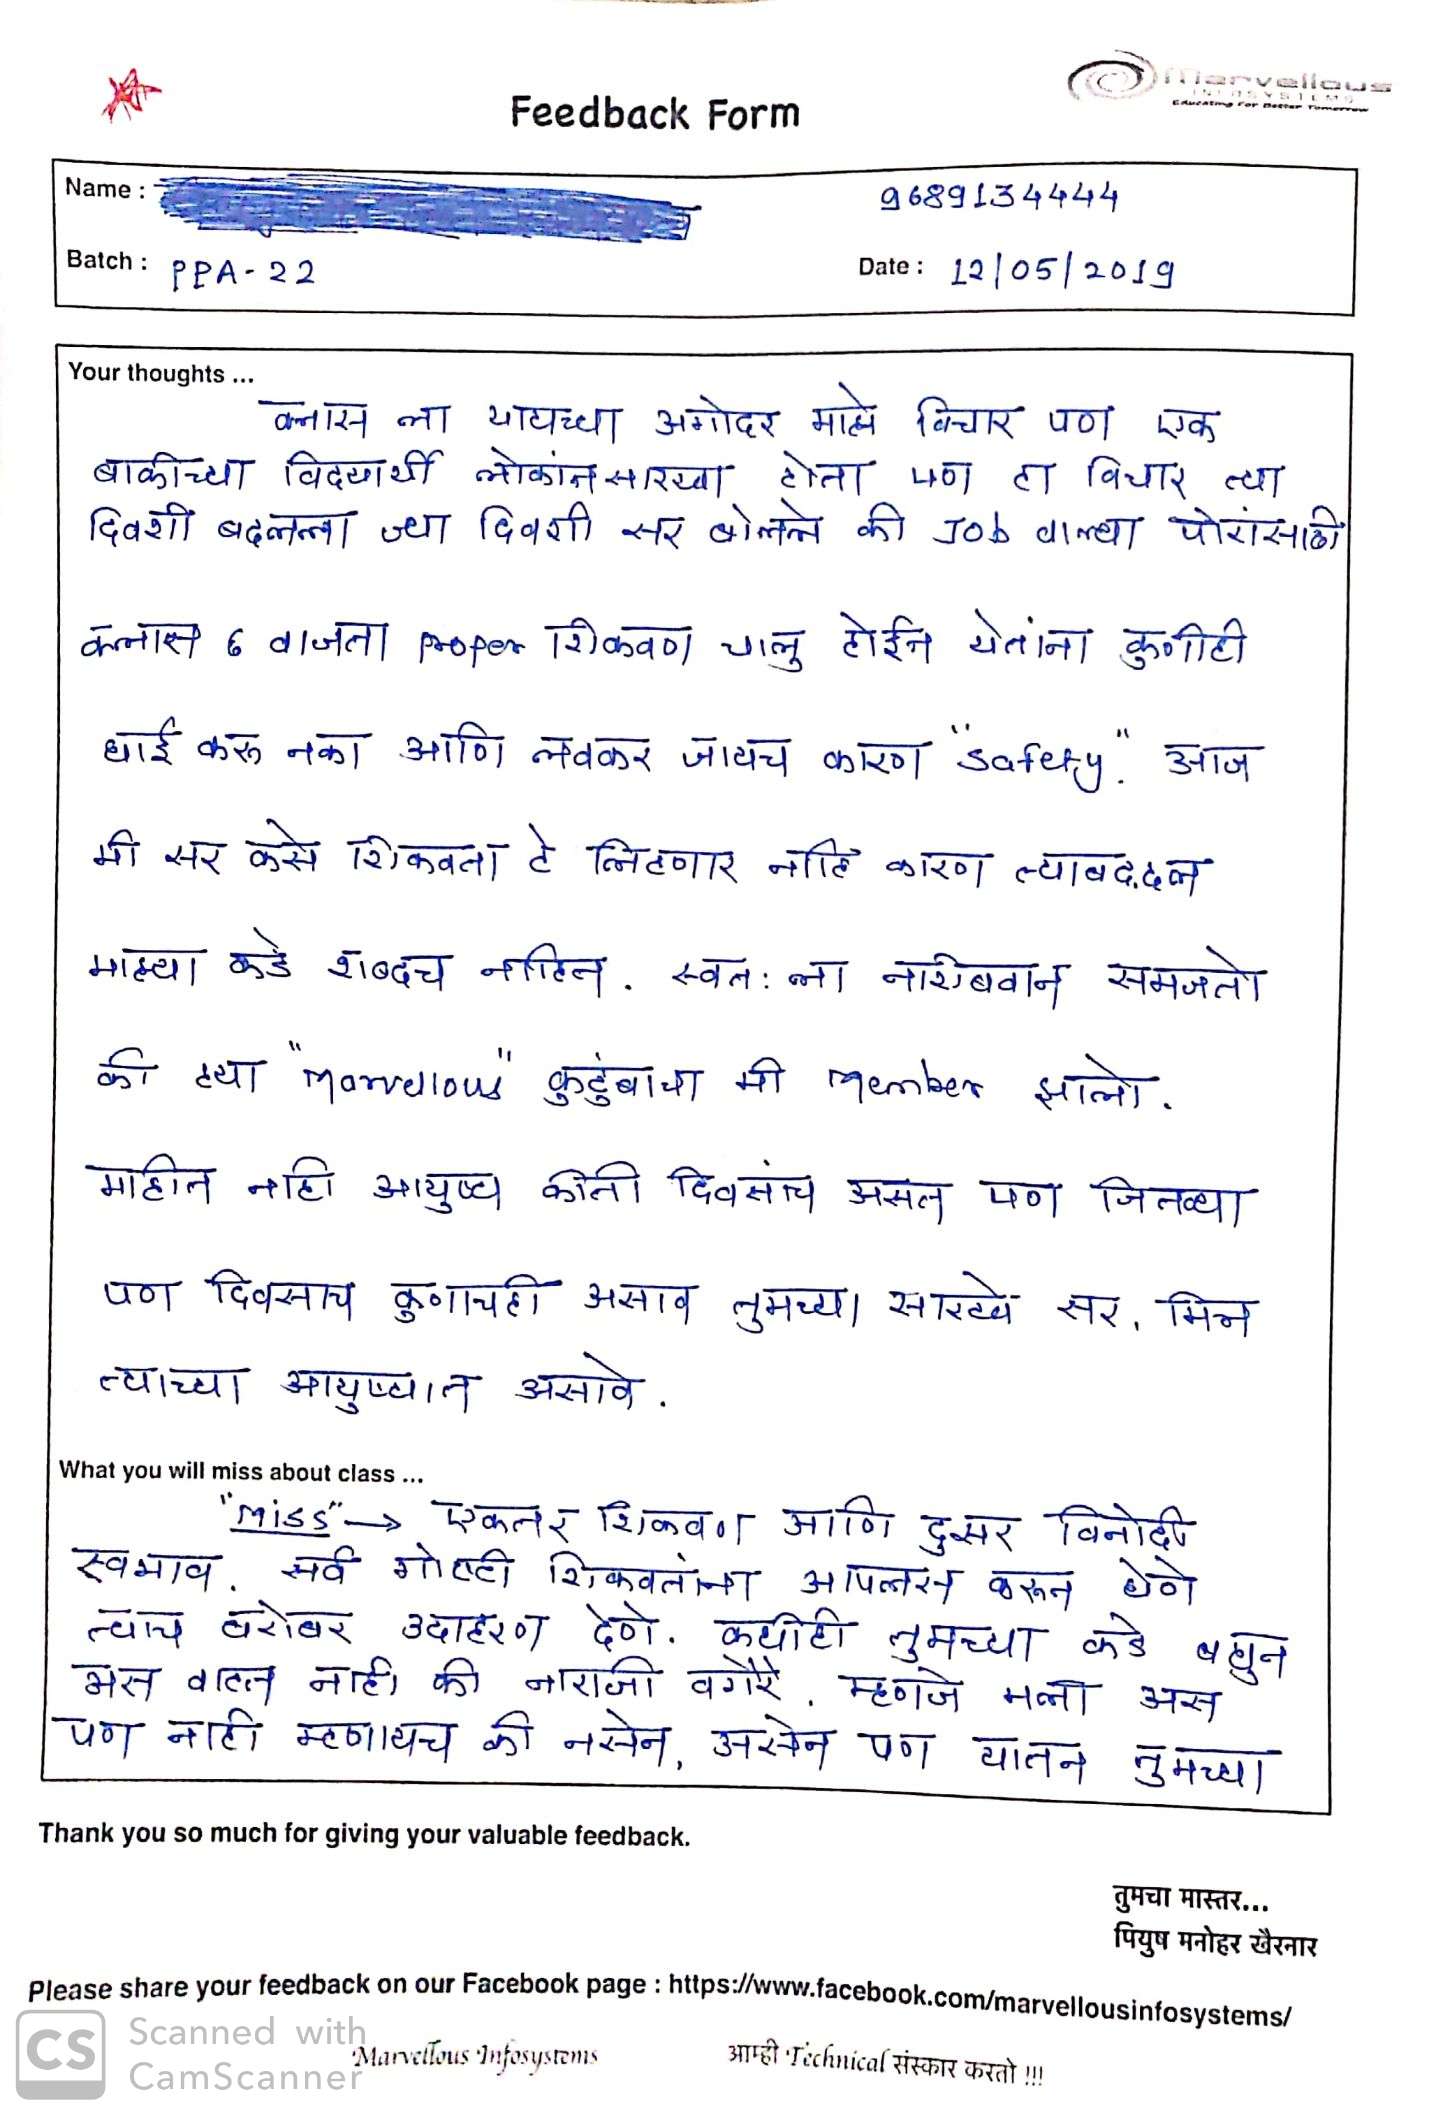 Marvellous
INFOSYSTEMS
Educating For Better Tomorrow
Feedback Form
Name : 9689134444
Batch : PPA-22 Date : 12/05/2019
Your thoughts ...
क्लास ला यायच्या अगोदर माझे विचार पण एक
बाकीच्या विद्यार्थी लोकांनसारखा होता पण हा विचार त्या
दिवशी बदलला ज्या दिवशी सर बोलले की Job वाल्या पोरांसाठी
क्लास 6 वाजता proper शिकवण चालु होईन येतांना कुणीही
घाई करू नका आणि लवकर जायच कारण "safety". आज
मी सर कसे शिकवता हे लिहणार नाहि कारण त्याबद्दल
माझ्या कडे शब्दच नाहित. स्वतः ला नशिबवान समजतो
की ह्या "Marvellous" कुटुंबाचा मी member झालो.
माहीत नाही आयुष्य कीती दिवसांच असल पण जितव्या
पण दिवसाच कुणाचही असाव तुमच्या सारखे सर, मित्र
त्याच्या आयुष्यात असावे.
What you will miss about class ...
"Miss" → एकतर शिकवण आणि दुसर विनोदी
स्वभाव. सर्व गोष्टी शिकवतांना आपलस करून घेणे
त्याच बरोबर उदाहरण देणे. कधीही तुमच्या कडे बघुन
अस वाटल नाही की नाराजी वगैरे. म्हणजे मला अस
पण नाही म्हणायच की नसेन, असेन पण यातन तुमच्या
Thank you so much for giving your valuable feedback.
तुमचा मास्तर...
पियुष मनोहर खैरनार
Please share your feedback on our Facebook page : https://www.facebook.com/marvellousinfosystems/
CS Scanned with
CamScanner
Marvellous Infosystems आम्ही Technical संस्कार करतो !!!